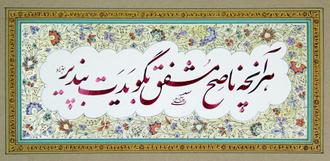 هر آنچه ناصح مشفق بگویدت بپذیر